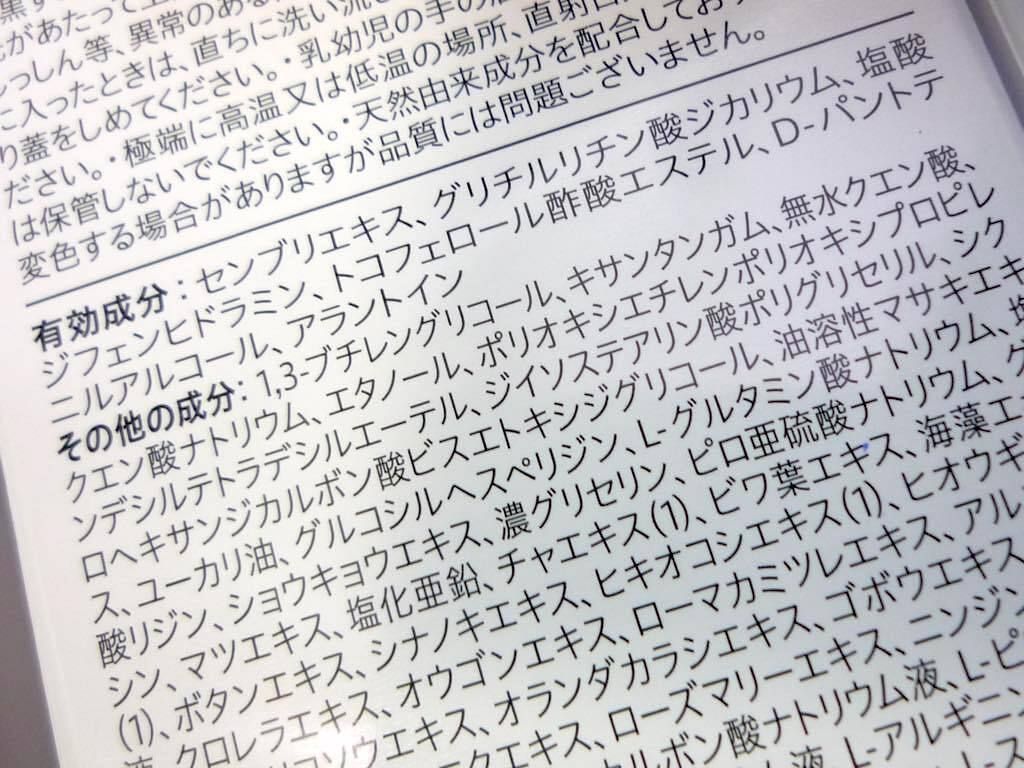 があたって
っしん等、異常のある
に入ったときは、直ちに洗い流
り蓋をしめてください。・乳幼児の手の
ださい。・極端に高温又は低温の場所、直射日
は保管しないでください。・天然由来成分を配合してお
変色する場合がありますが品質には問題ございません。
有効成分:センブリエキス、グリチルリチン酸ジカリウム、塩酸
ジフェンヒドラミン、トコフェロール酢酸エステル、D-パントテ
ニルアルコール、アラントイン
その他の成分:1,3-ブチレングリコール、キサンタンガム、無水クエン酸、
クエン酸ナトリウム、エタノール、ポリオキシエチレンポリオキシプロピレ
ンデシルテトラデシルエーテル、ジイソステアリン酸ポリグリセリル、シク
ロヘキサンジカルボン酸ビスエトキシジグリコール、油溶性マサキエキ
ス、ユーカリ油、グルコシルヘスペリジン、L-グルタミン酸ナトリウム、塩
酸リジン、ショウキョウエキス、濃グリセリン、ピロ亜硫酸ナトリウム、グ
シン、マツエキス、塩化亜鉛、チャエキス(1)、ビワ葉エキス、海藻エ
(1)、ボタンエキス、シナノキエキス、ヒキオコシエキス(1)、ヒオウギ
液、クロレラエキス、オウゴンエキス、ローマカミツレエキス、アル
ソウエキス、オランダカラシエキス、ゴボウエキス
クエキス、ローズマリーエキス、ニンジン
ルボン酸ナトリウム液、L-ピ
液、L-アルギニ